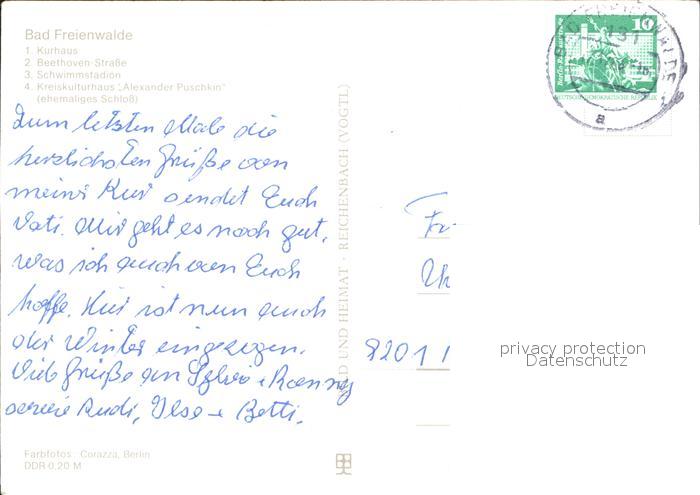 Bad Freienwalde
1. Kurhaus
2. Beethoven-Straße
3. Schwimmstadion
4. Kreiskulturhaus "Alexander Puschkin"
(ehemaliges Schloß)
Zum letzten Male die
herzlichsten Grüße von
meiner Kur sendet Euch
Vati. Mir geht es noch gut,
was ich auch von Euch
hoffe. Hier ist nun auch
der Winter eingezogen.
Viele Grüße an Sylvia + Ronny
sowie Rudi, Ilse + Betti.
Farbfotos: Corazza, Berlin
DDR 0,20 M
BILD UND HEIMAT · REICHENBACH (VOGTL)
10
DEUTSCHE DEMOKRATISCHE REPUBLIK
BAD FREIENWALDE
131
a
8201
privacy protection
Datenschutz